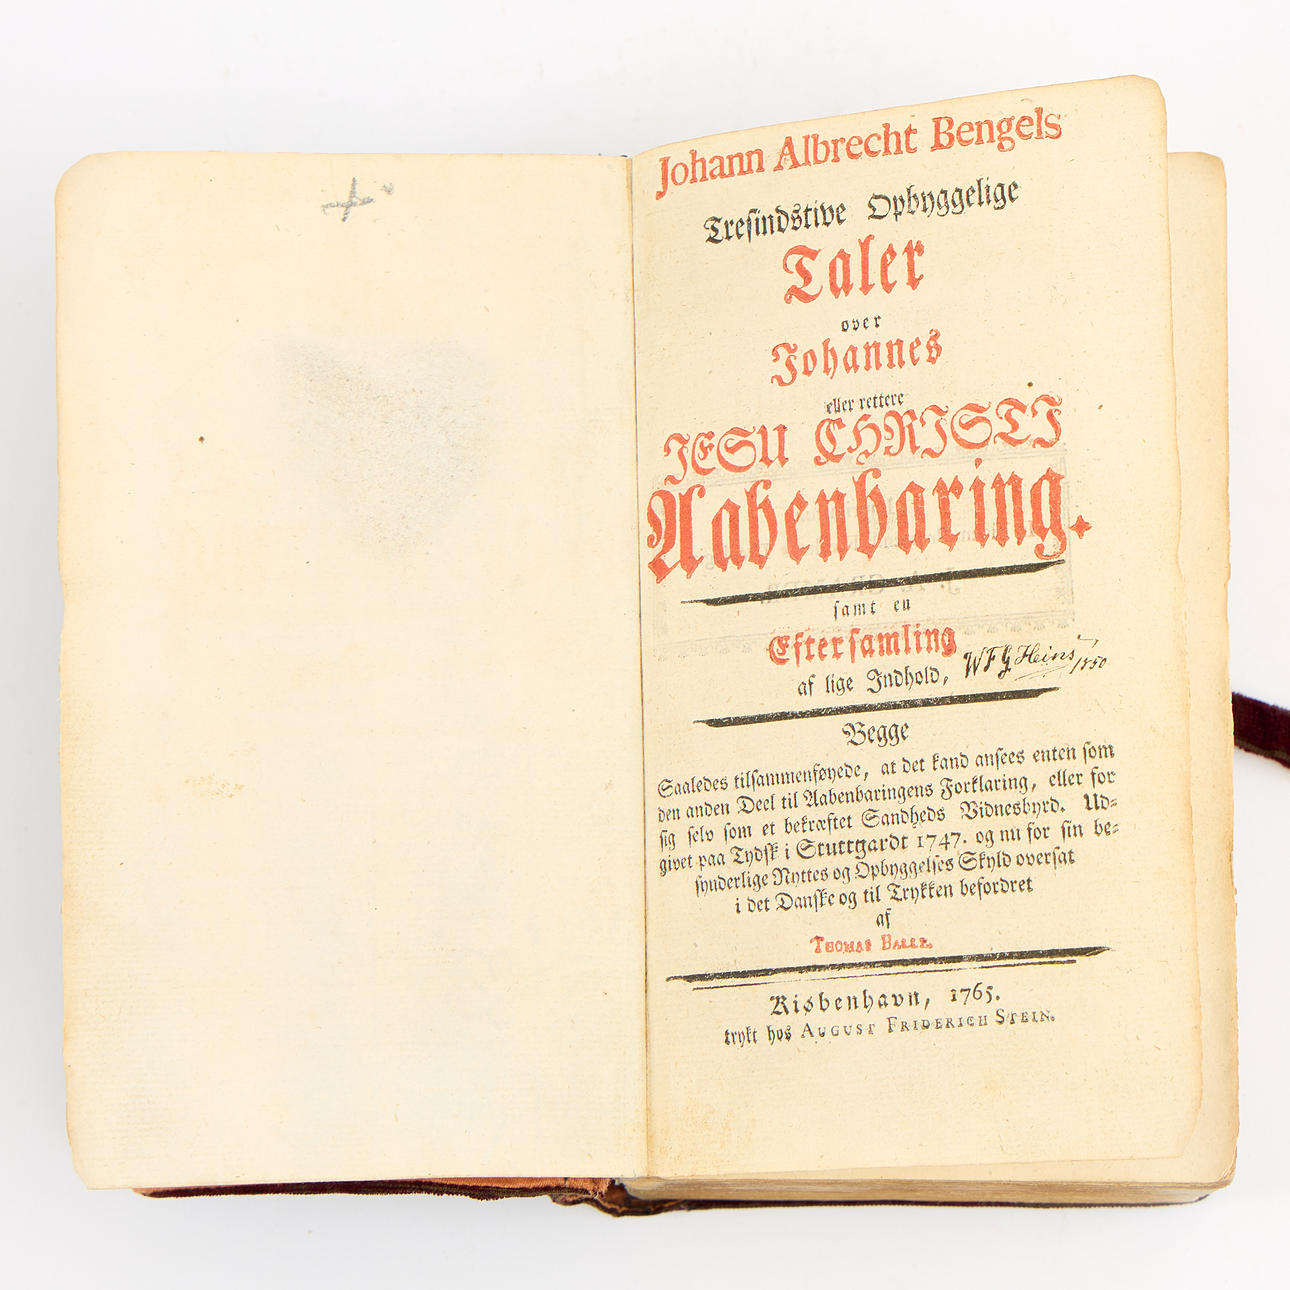 Johann Albrecht Bengels
Tresindstive Opbyggelige
Taler
over
Johannes
eller rettere
JESU CHRISTI
Aabenbaring.
samt en
Eftersamling
af lige Indhold,
WFG Heins 1850
Begge
Saaledes tilsammenføyede, at det kand ansees enten som
den anden Deel til Aabenbaringens Forklaring, eller for
sig selv som et bekræftet Sandheds Vidnesbyrd. Ud-
givet paa Tydsk i Stuttgardt 1747. og nu for sin be-
synderlige Nyttes og Opbyggelses Skyld oversat
i det Danske og til Trykken befordret
af
THOMAS BALLE.
Kiøbenhavn, 1765.
trykt hos AUGUST FRIDERICH STEIN.